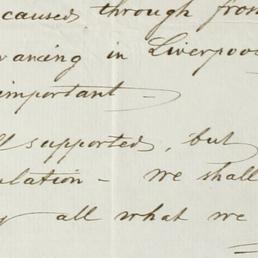 caused through from
vancing in Liverpool
important —
ll supported, but
ulation - we shall
all what we